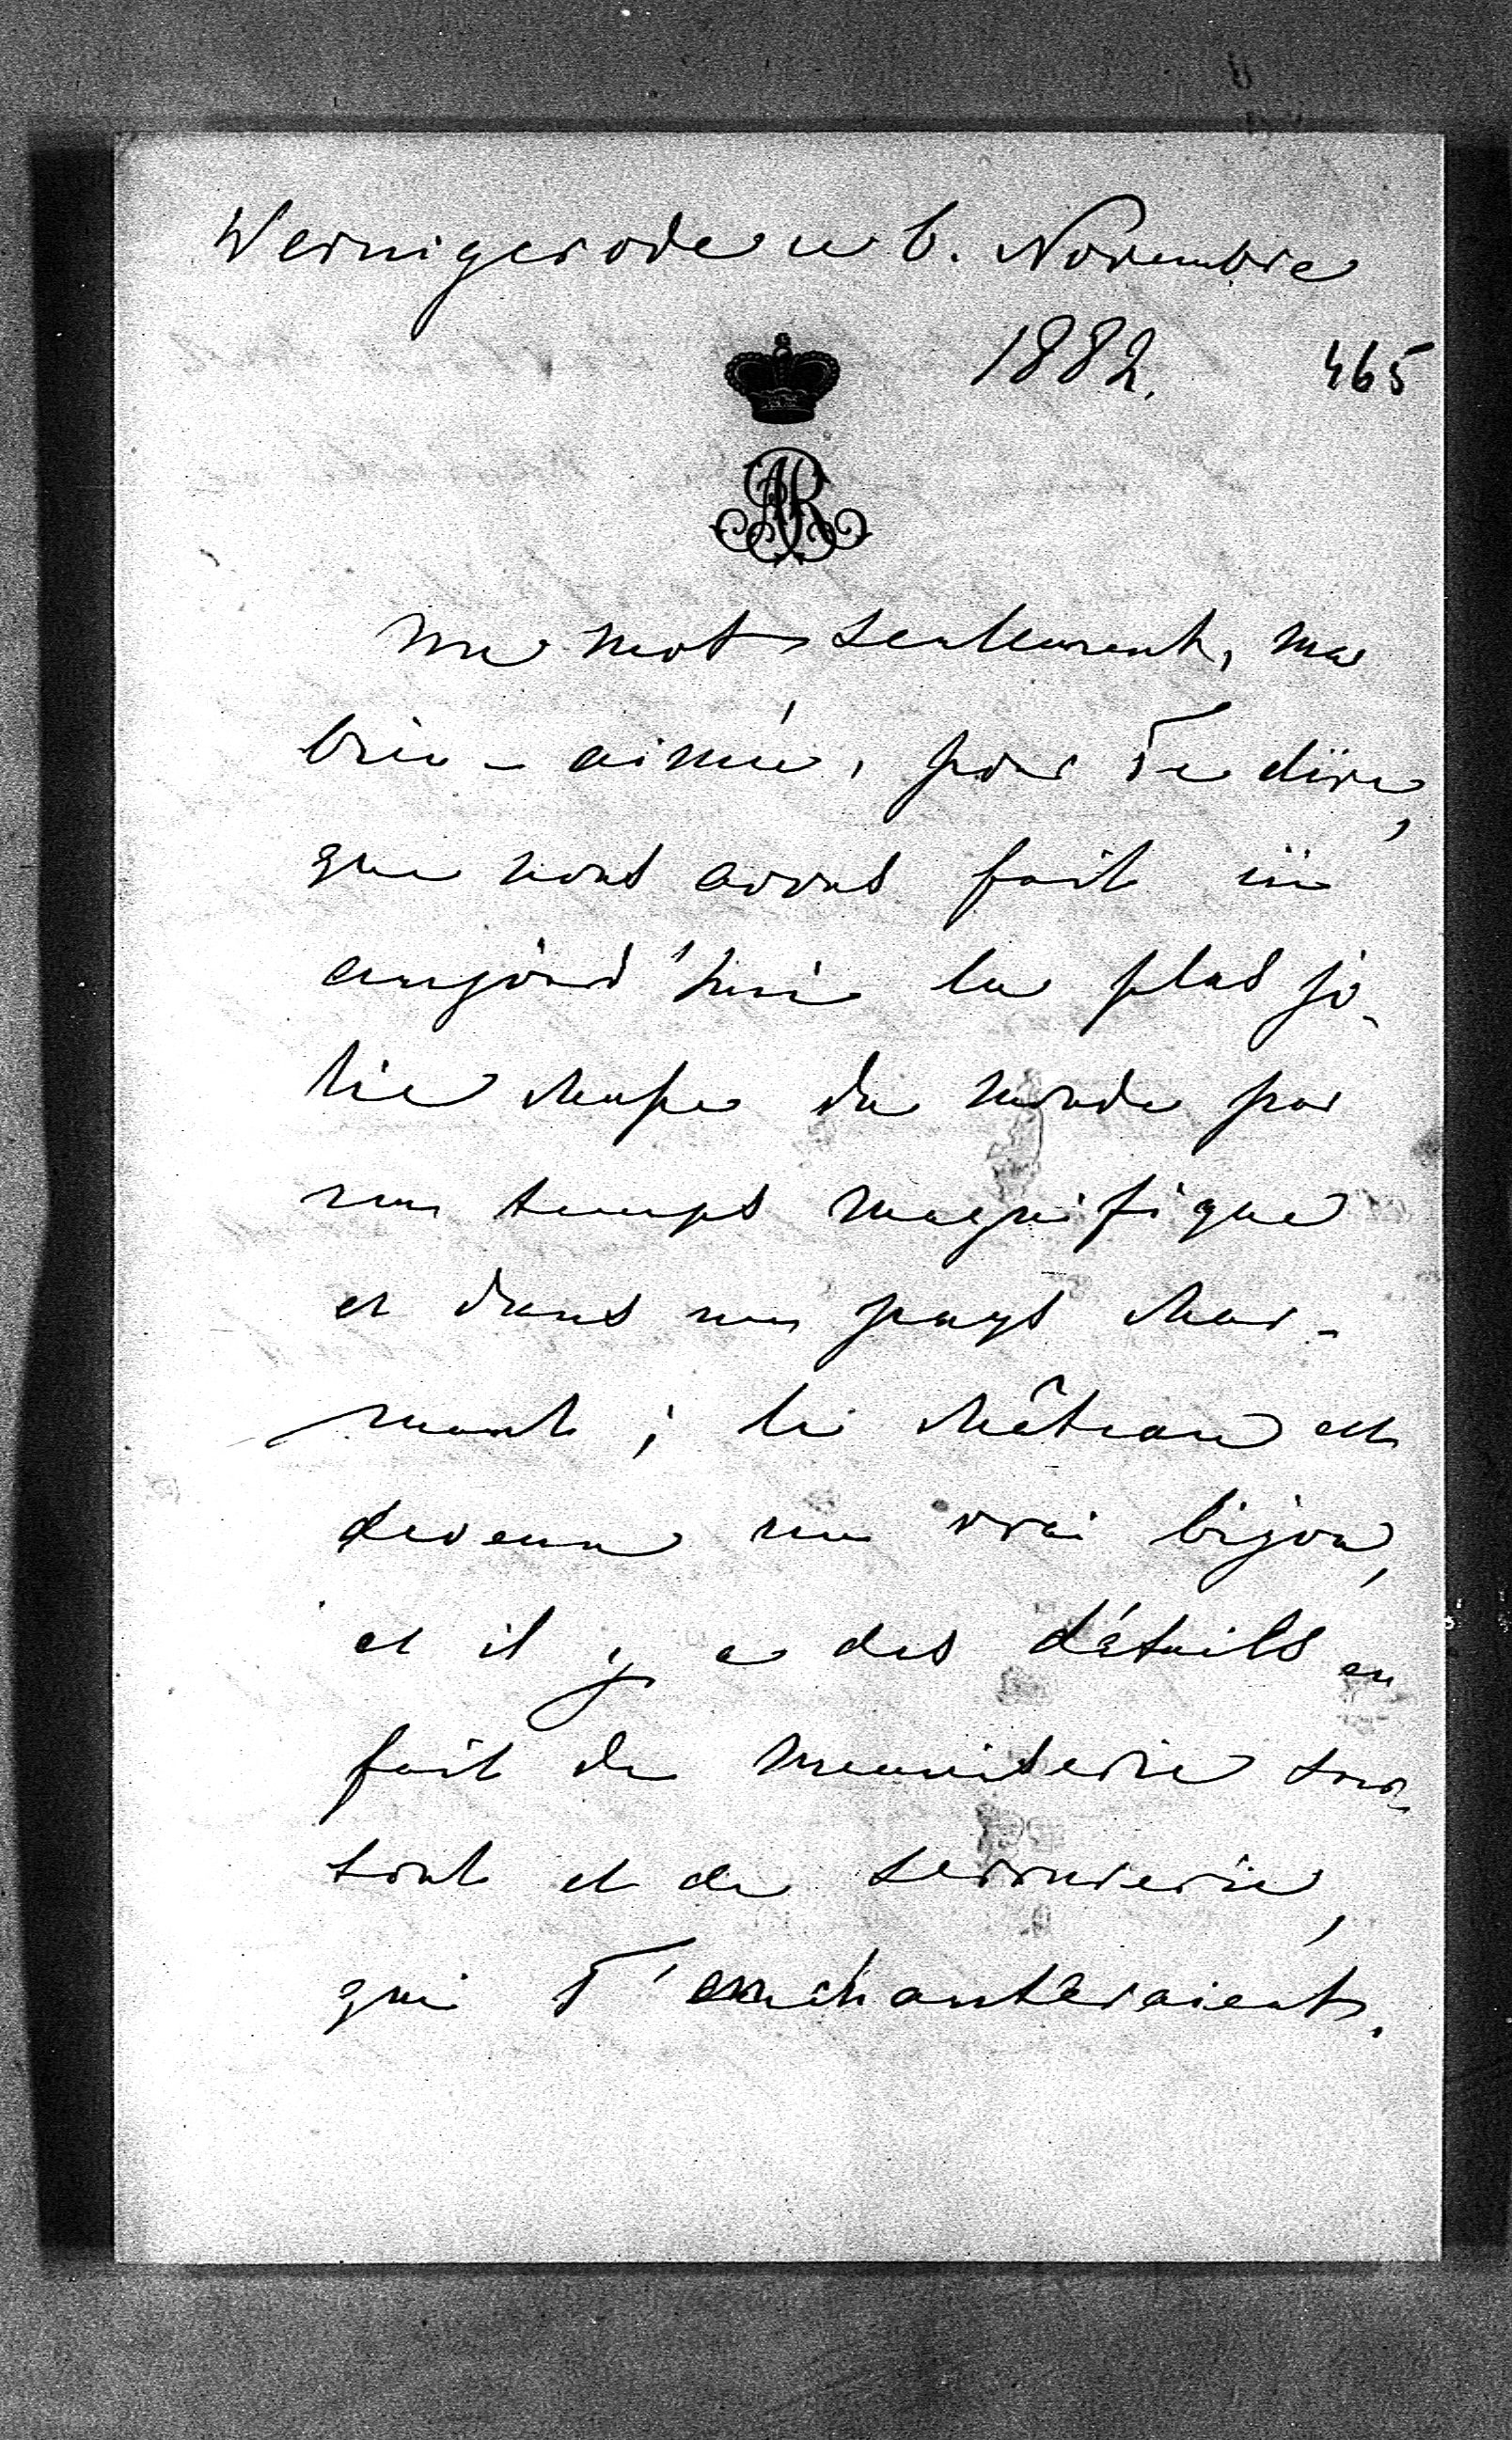 Wernigerode ce 6. Novembre
1882. 465
AR
Un mot seulement, ma
bien-aimée, pour Te dire,
que nous avons fait ici
aujourd'hui la plus jo-
lie chasse du monde par
un temps magnifique
et dans un pays char-
mant; le château est
devenu un vrai bijou,
et il y a des détails en
fait de menuiserie sur-
tout et de serrurerie,
qui T'enchanteraient.